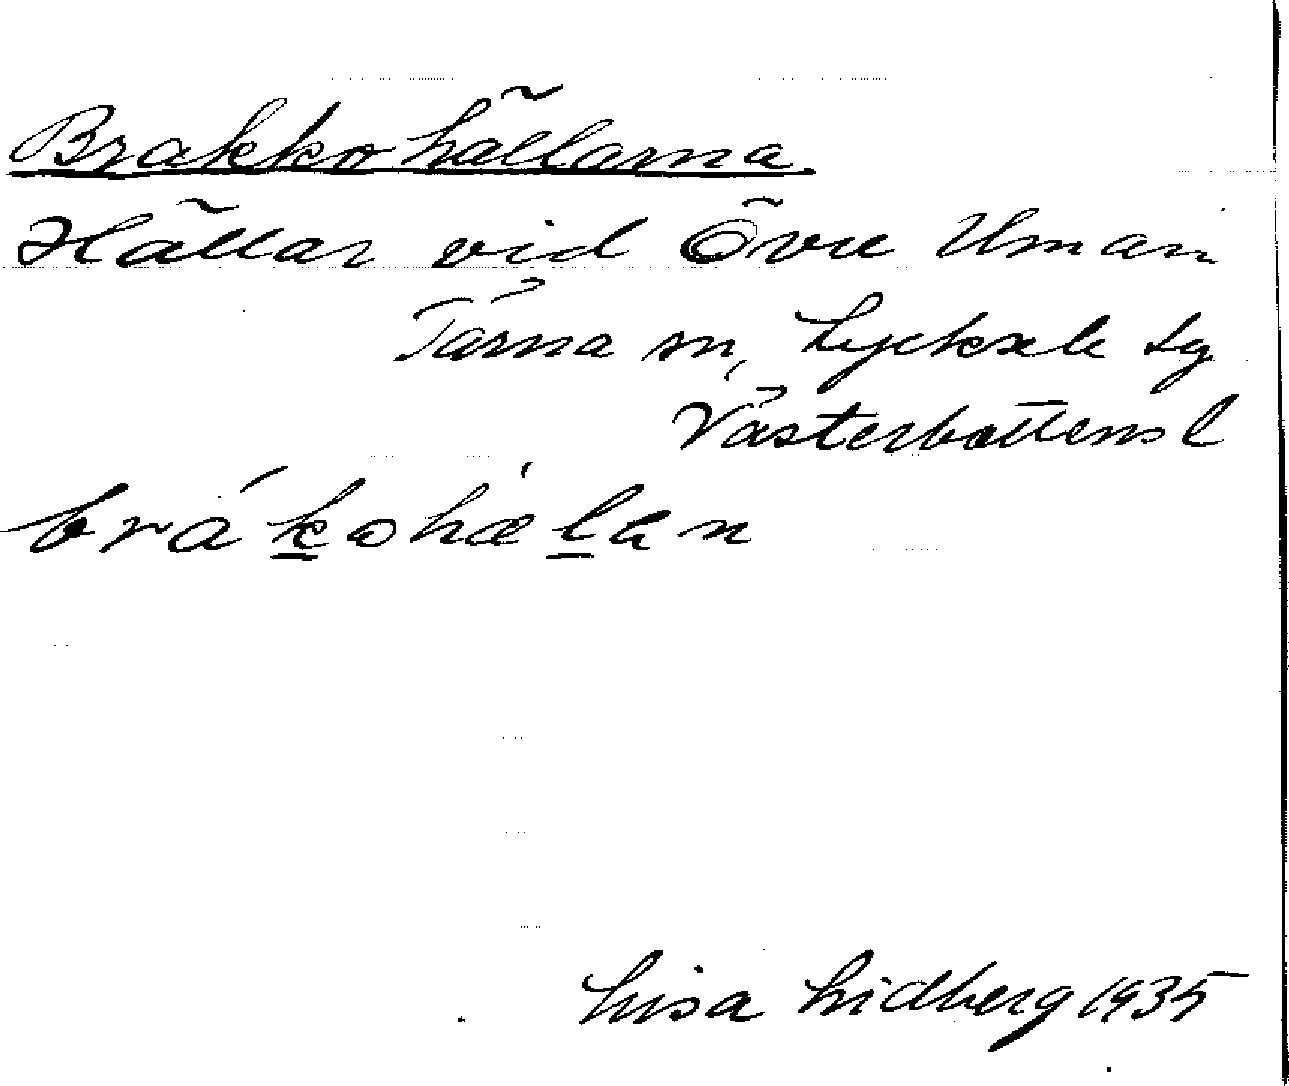 Brakkohällarna
Hällar vid Övre Uman
Tärna sn, Lycksele lg
Västerbottens l
brákohælan
Lisa Lidberg 1935